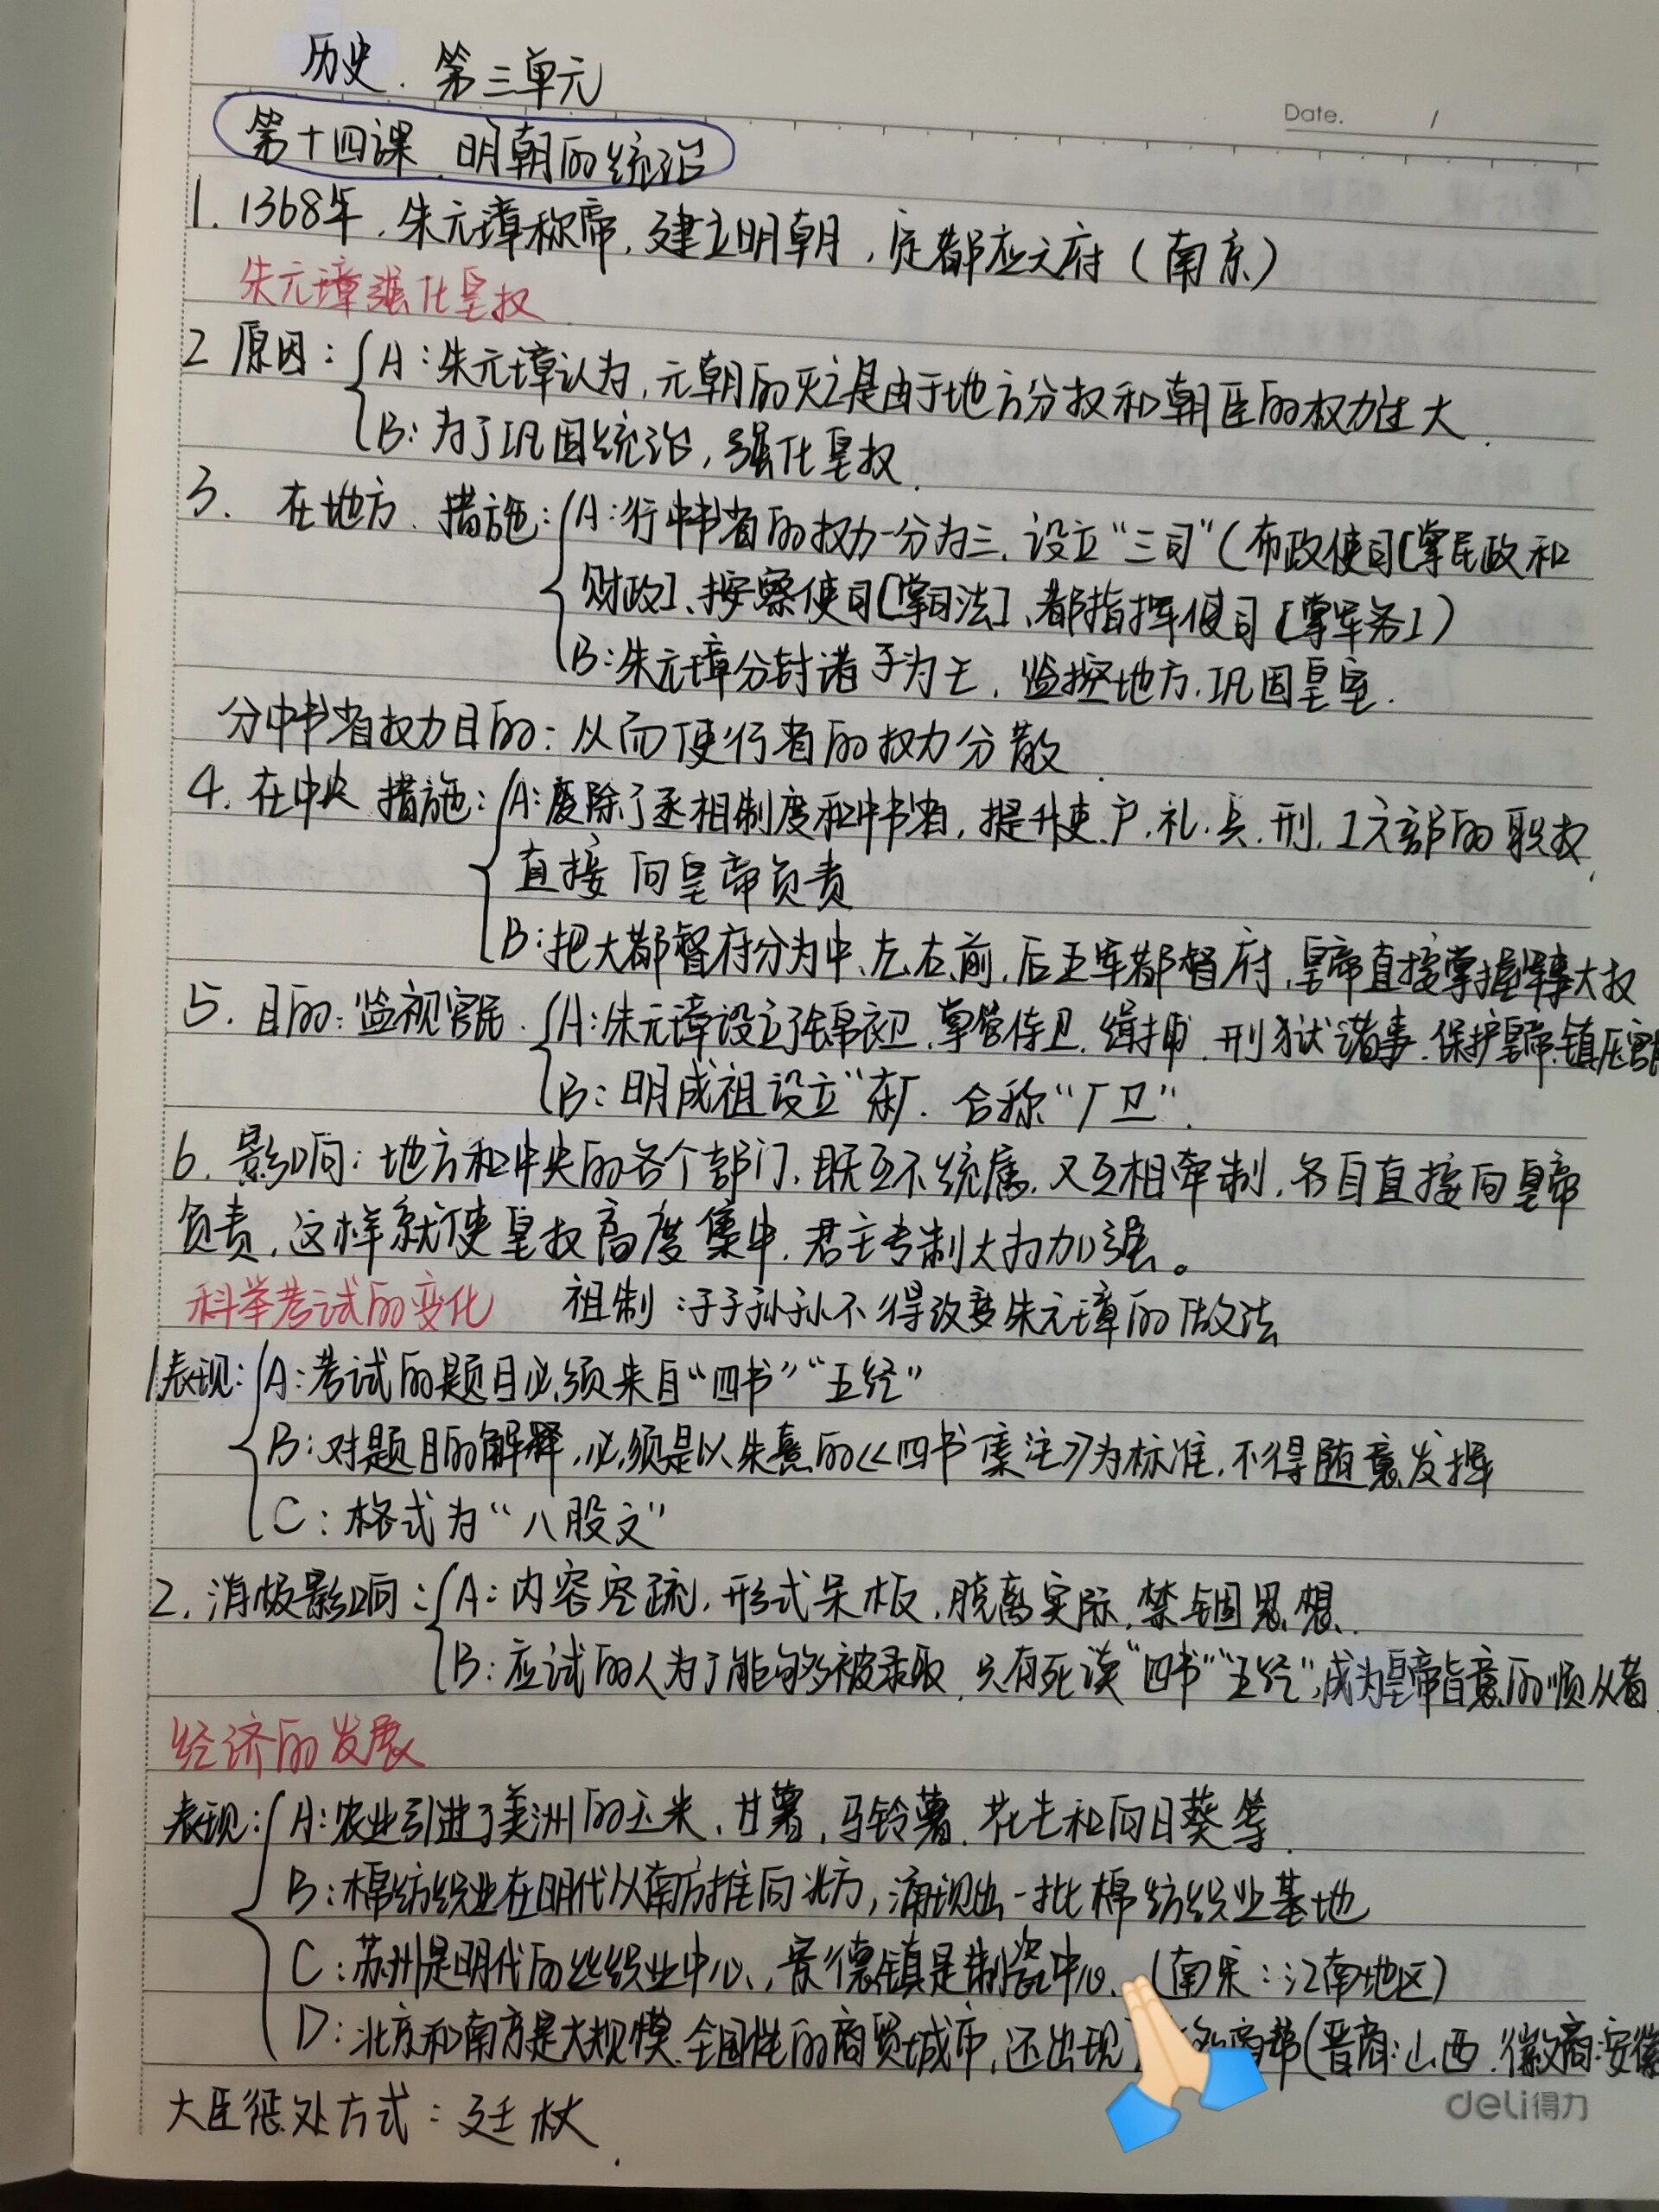 历史.第三单元
Date. /
第十四课.明朝的统治
1. 1368年.朱元璋称帝,建立明朝,定都应天府(南京)
朱元璋强化皇权
2 原因:A:朱元璋认为,元朝的灭亡是由于地方分权和朝臣的权力过大.
B:为了巩固统治,强化皇权.
3. 在地方.措施:A:行中书省的权力一分为三.设立“三司”(布政使司[掌民政和
财政]、按察使司[掌司法]、都指挥使司[掌军务])
B:朱元璋分封诸子为王,监控地方.巩固皇室.
分中书省权力目的:从而使行省的权力分散.
4. 在中央 措施:A:废除了丞相制度和中书省,提升吏.户.礼.兵.刑.工六部的职权,
直接向皇帝负责
B:把大都督府分为中、左、右、前、后五军都督府,皇帝直接掌握军事大权
5. 目的:监视官民.A:朱元璋设立了锦衣卫.掌管侍卫.缉捕.刑狱诸事.保护皇帝.镇压官
B:明成祖设立“东厂.合称“厂卫”.
6. 影响:地方和中央的各个部门,既互不统属.又互相牵制,各自直接向皇帝
负责,这样就使皇权高度集中.君主专制大为加强。
科举考试的变化 祖制:子子孙孙不得改变朱元璋的做法
1表现:A:考试的题目必须来自“四书”“五经”
B:对题目的解释,必须是以朱熹的《四书集注》为标准,不得随意发挥
C:格式为“八股文”
2.消极影响:A:内容空疏,形式呆板,脱离实际.禁锢思想.
B:应试的人为了能够被录取.只有死读“四书”“五经”,成为皇帝旨意的顺从者.
经济的发展
表现:A:农业引进了美洲的玉米,甘薯,马铃薯.花生和向日葵等.
B:棉纺织业在明代从南方推向北方,涌现出一批棉纺织业基地
C:苏州是明代的丝织业中心,景德镇是制瓷中心.(南宋:江南地区)
D:北京和南京是大规模.全国性的商贸城市,还出现 商帮(晋商:山西.徽商:安徽
大臣惩处方式:廷杖.
deli得力